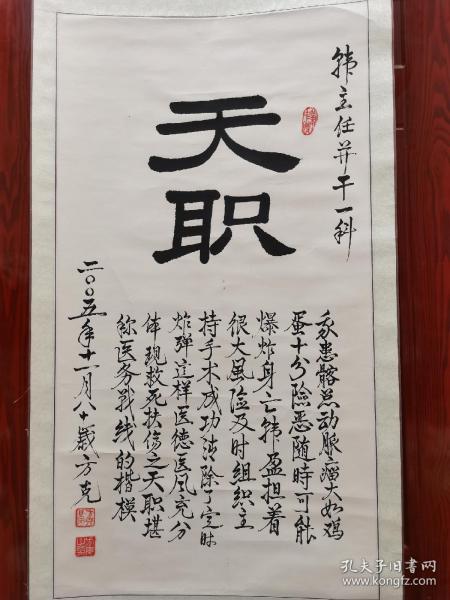 韩主任并干一科
天职
我患髂总动脉瘤大如鸡
蛋十分险恶随時可能
爆炸身亡韩盈担着
很大风险及时组织主
持手术成功清除了定时
炸弹这样医德医风充分
体现救死扶伤之天职堪
称医务战线的楷模
二〇〇五年十一月八十歲方克
孔夫子旧书网
www.kongfz.com